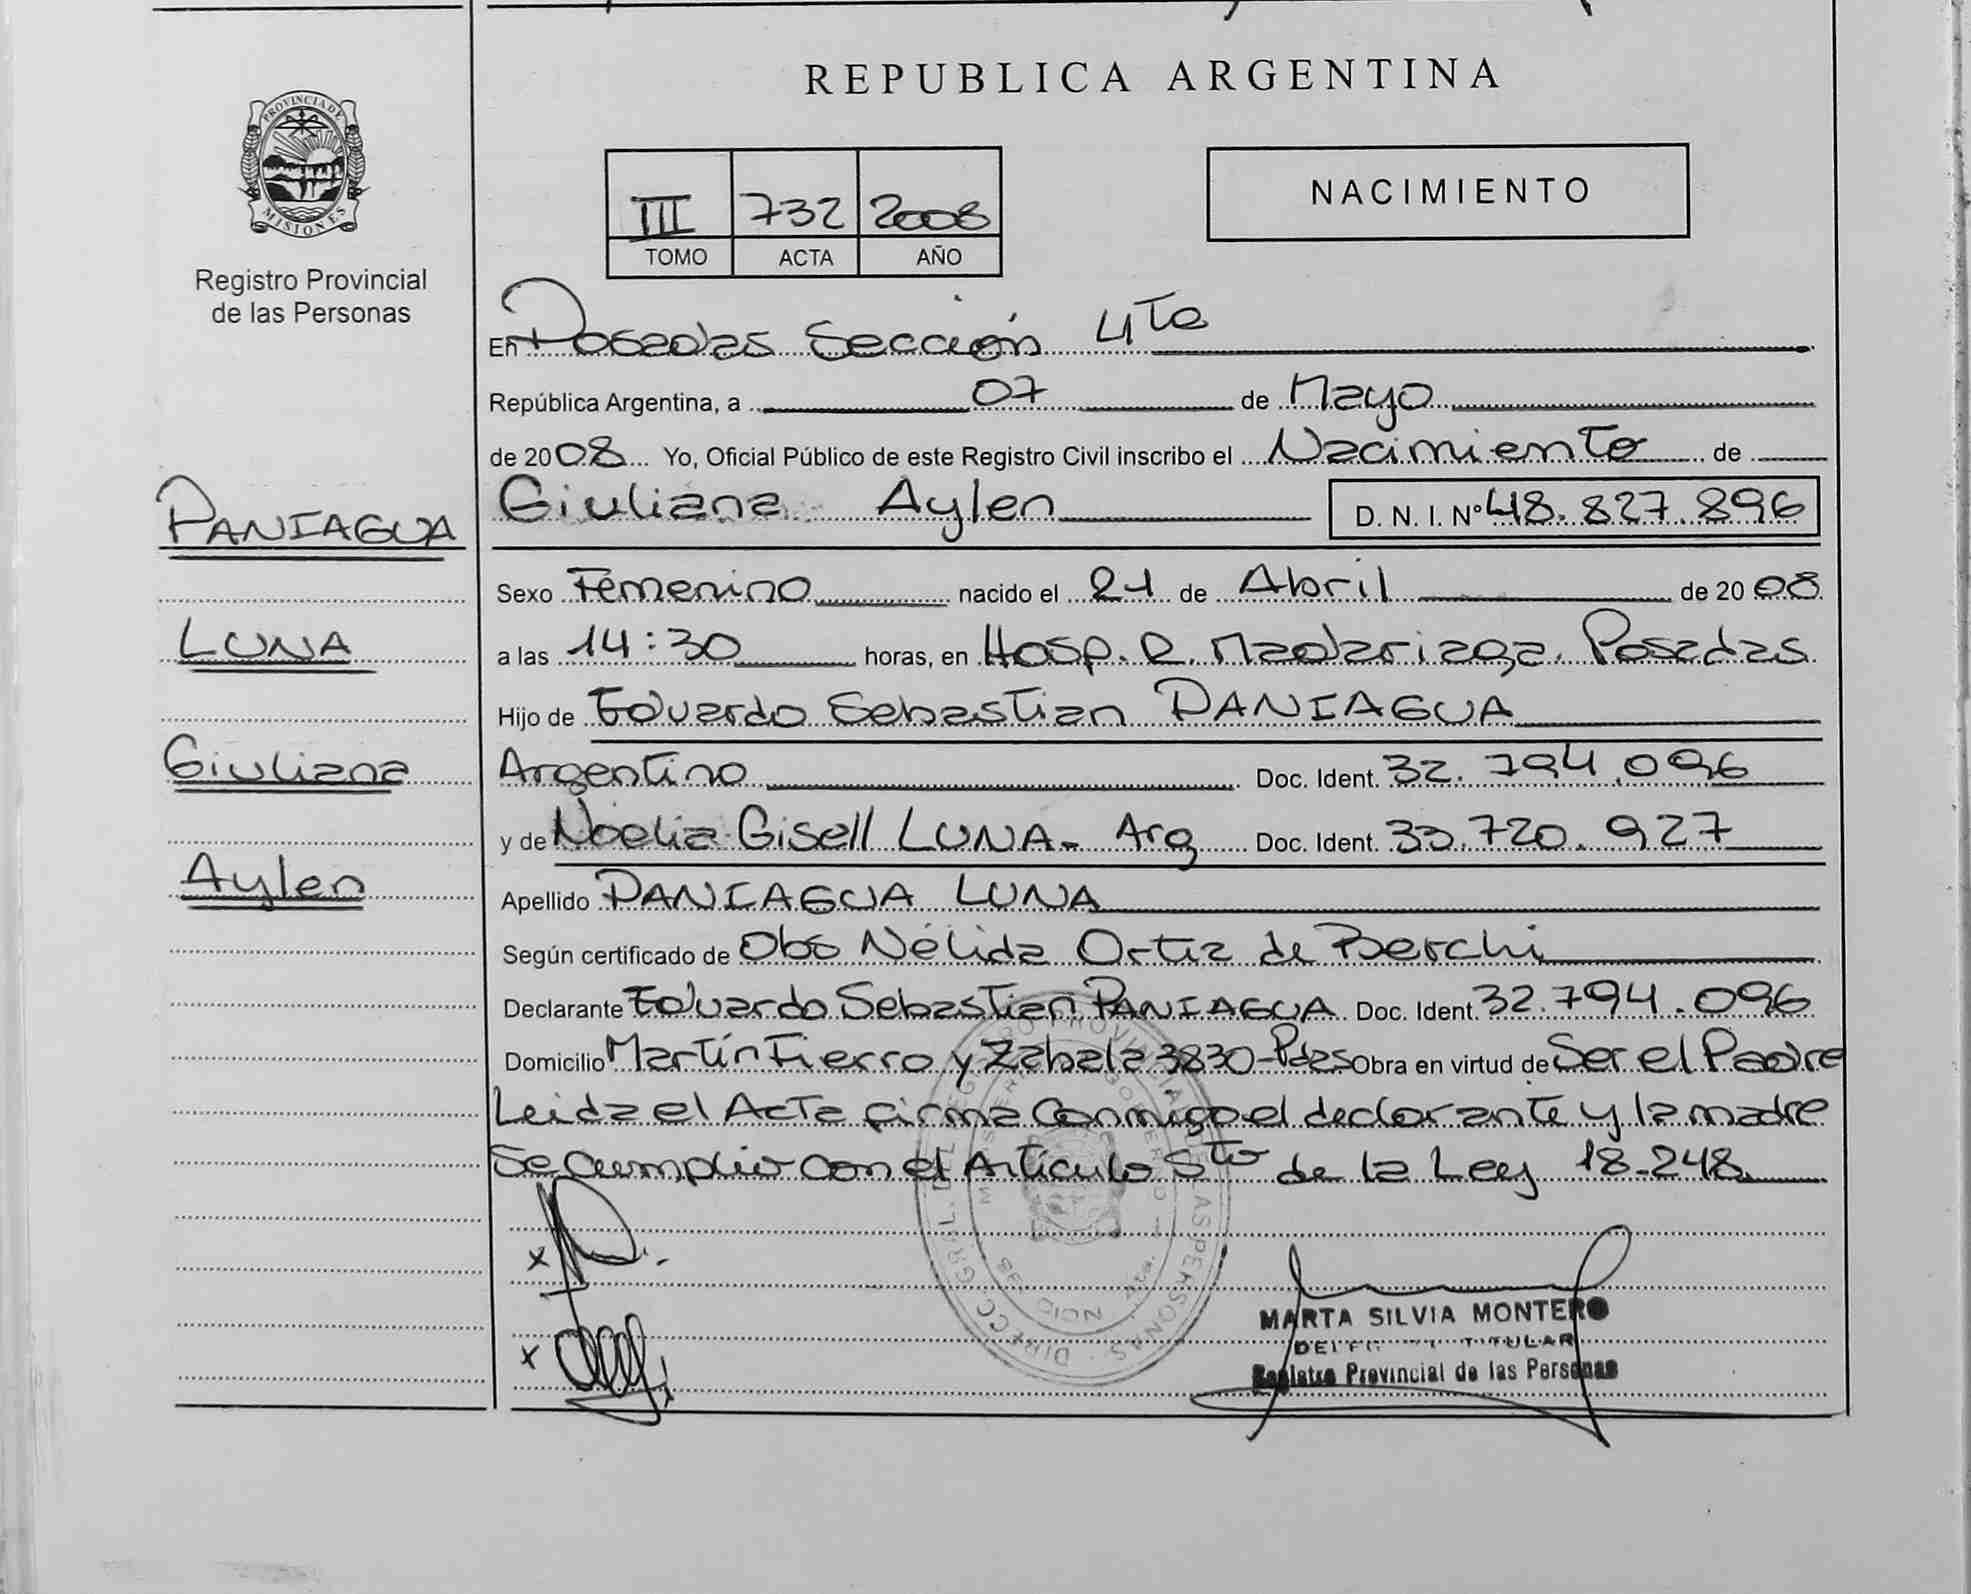 REPUBLICA ARGENTINA
PROVINCIA DE MISIONES
Registro Provincial
de las Personas
III 732 2008
TOMO ACTA AÑO
NACIMIENTO
PANIAGUA
LUNA
Giuliana
Aylen
En Posadas Sección 4Ta
República Argentina, a 07 de Mayo
de 2008 Yo, Oficial Público de este Registro Civil inscribo el Nacimiento de
Giuliana Aylen D. N. I. Nº 48.827.896
Sexo Femenino nacido el 21 de Abril de 2008
a las 14:30 horas, en Hosp. R. Madariaga. Posadas
Hijo de Eduardo Sebastian PANIAGUA
Argentino Doc. Ident. 32.794.096
y de Noelia Gisell LUNA - Arg Doc. Ident. 33.720.927
Apellido PANIAGUA LUNA
Según certificado de Obs Nélida Ortiz de Berchi
Declarante Eduardo Sebastian PANIAGUA Doc. Ident. 32.794.096
Domicilio Martín Fierro y Zabala 3830-Pdas Obra en virtud de Ser el Padre
Leida el Acta firma Conmigo el declarante y la madre
Se Cumplio con el Articulo 5to de la Ley 18.248
x
x
MARTA SILVIA MONTERO
TITULAR
Registro Provincial de las Personas